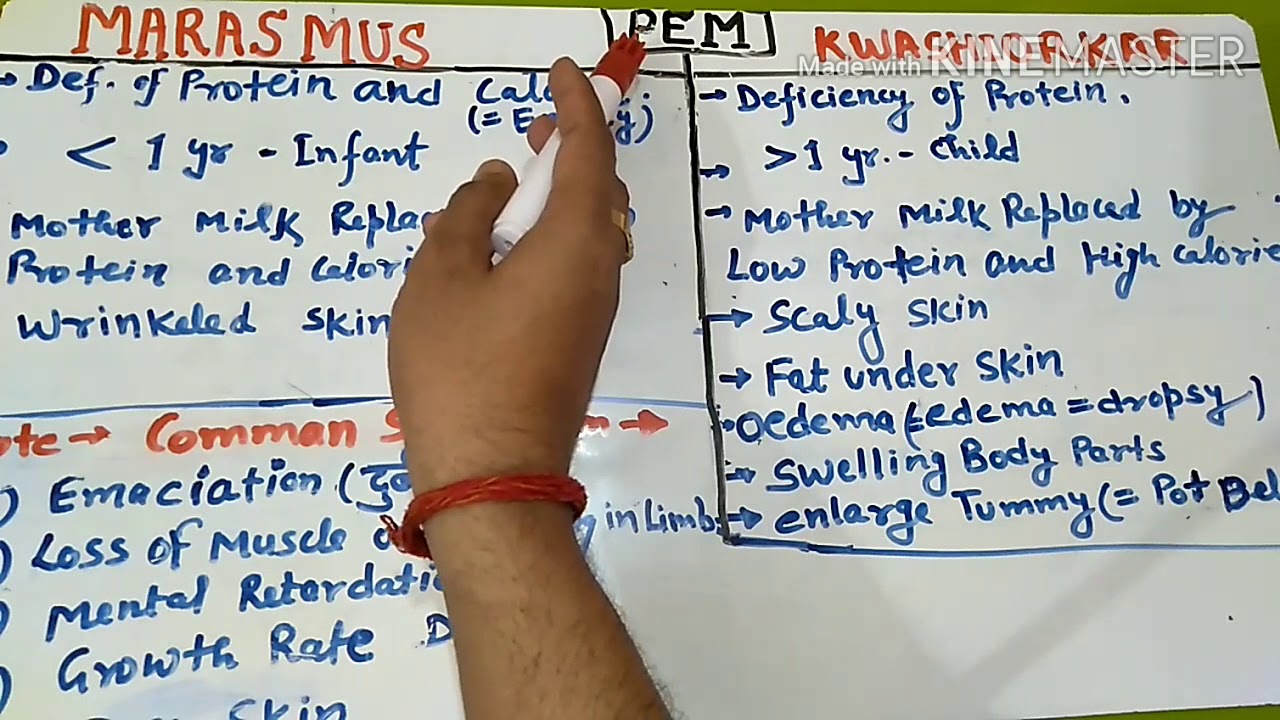 MARASMUS
PEM
KWASHIORKAR
Made with KINEMASTER
Def. of Protein and
(=
< 1 yr - Infant
Mother Milk
Protein and
Wrinkeled Skin
→ Deficiency of Protein.
→ >1 yr. - Child
→ Mother Milk Replaced by
Low Protein and High Calorie
→ Scaly Skin
→ Fat under Skin
Oedema (=edema = dropsy)
→ Swelling Body Parts
→ enlarge Tummy (= Pot
→ Comman →
Emaciation (
Loss of Muscle
in Limbs
Mental
Growth Rate
Skin